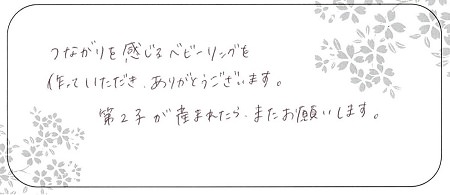 つながりを感じるベビーリングを
作っていただき、ありがとうございます。
第2子が産まれたら、またお願いします。